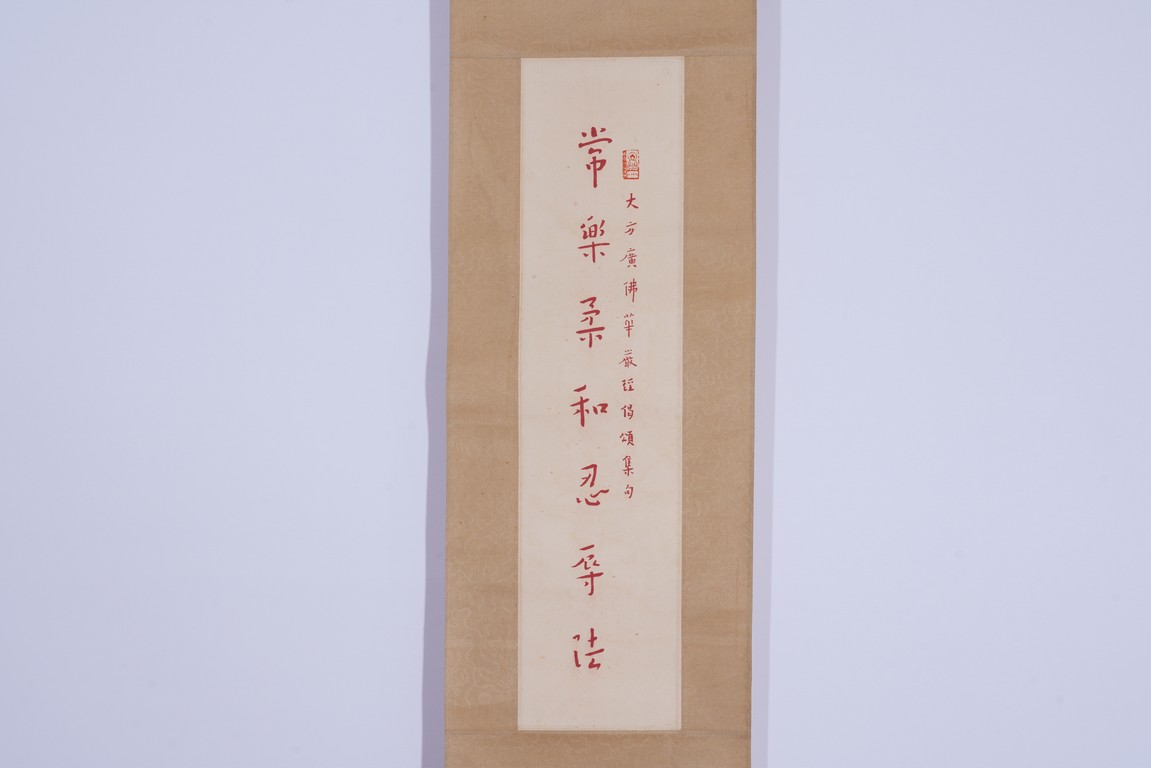 大方廣佛華嚴經偈頌集句
常樂柔和忍辱法